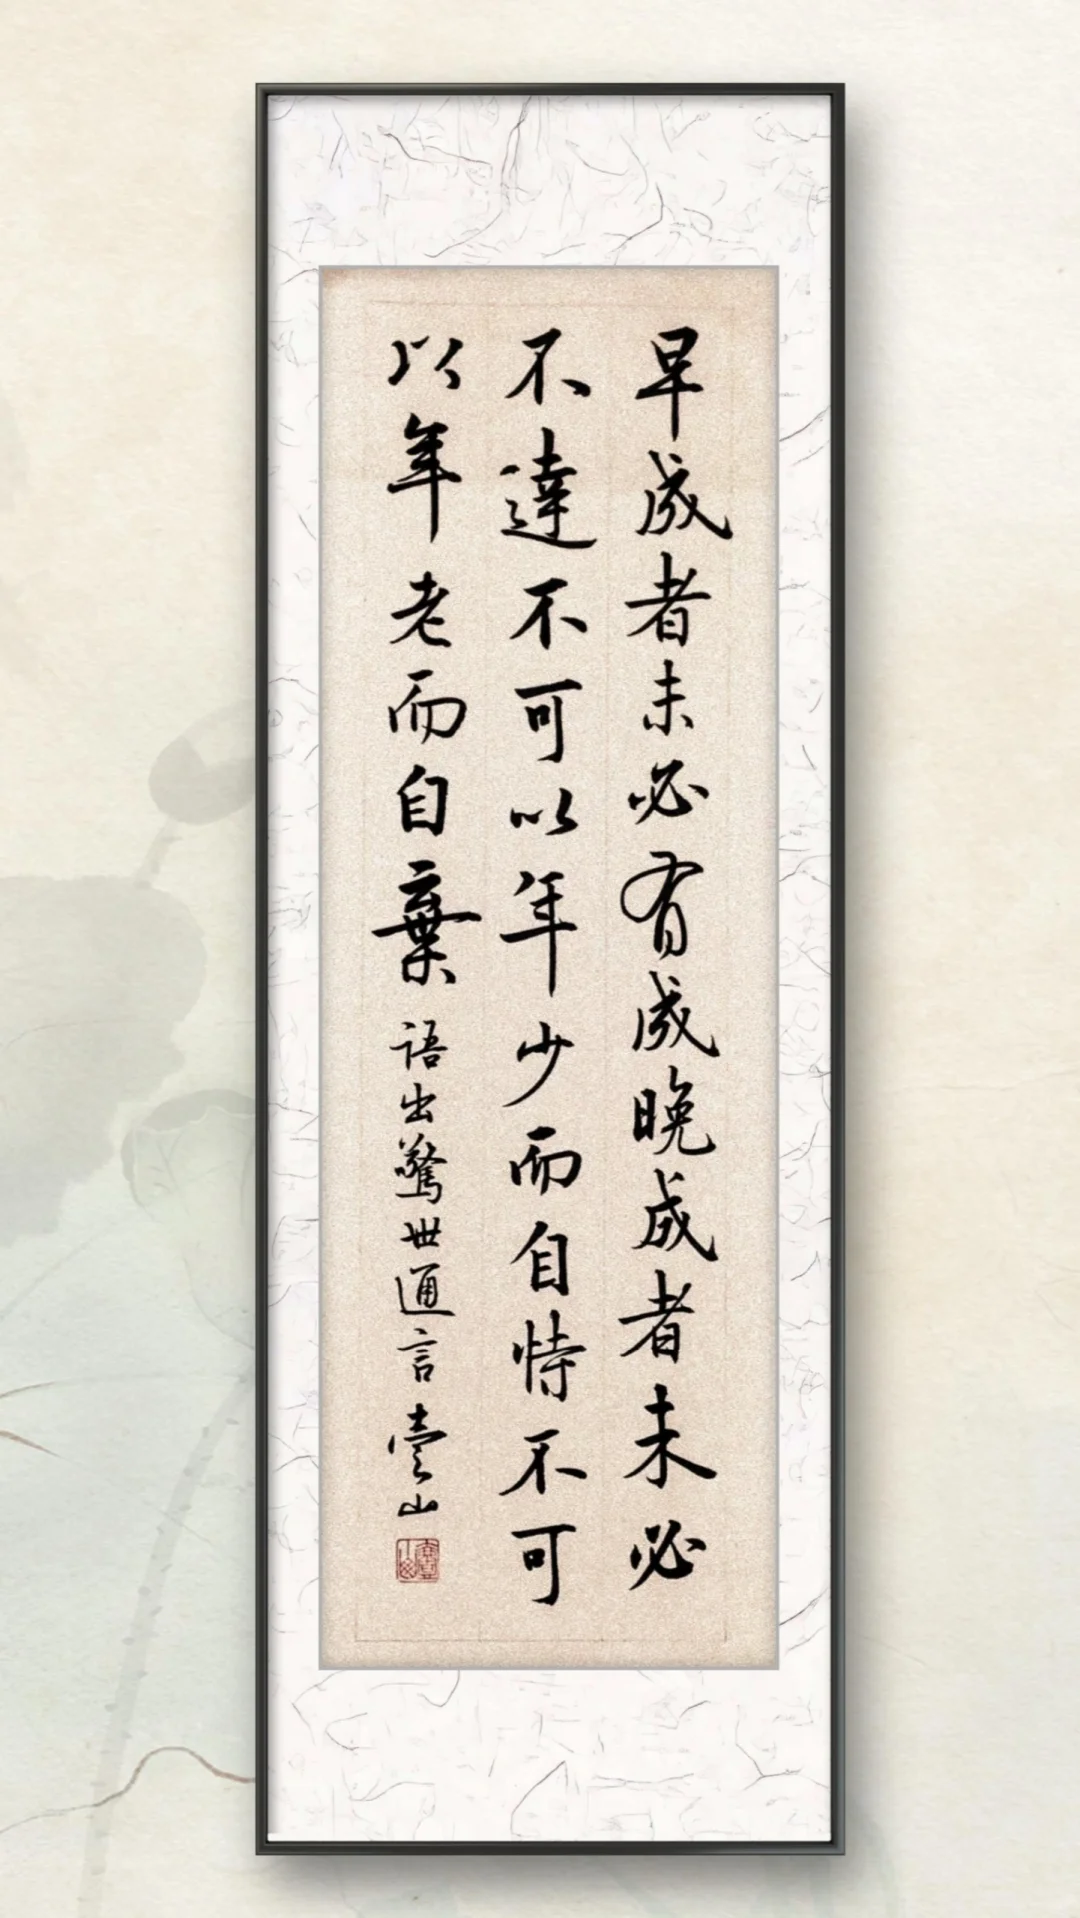 早成者未必有成晚成者未必
不達不可以年少而自恃不可
以年老而自棄
語出驚世通言
壹山